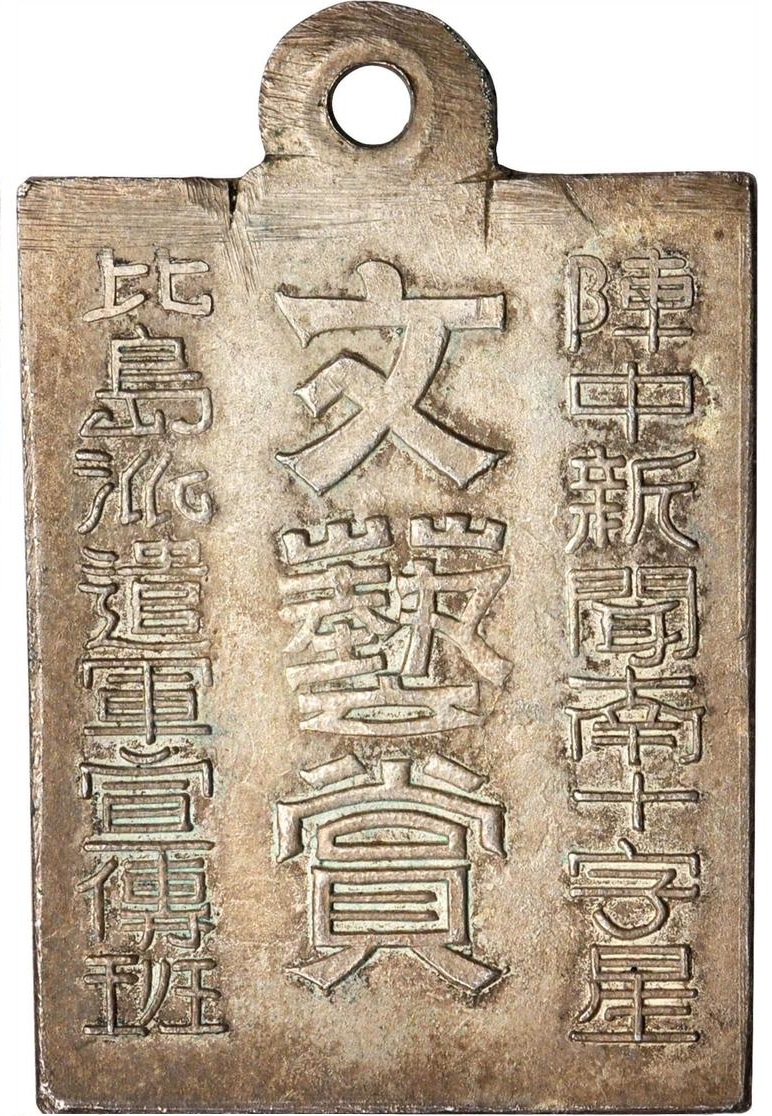 陣中新聞南十字星
文藝賞
比島派遣軍宣傳班